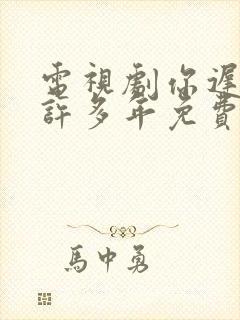 電視劇你遲
許多年免費
馬中勇